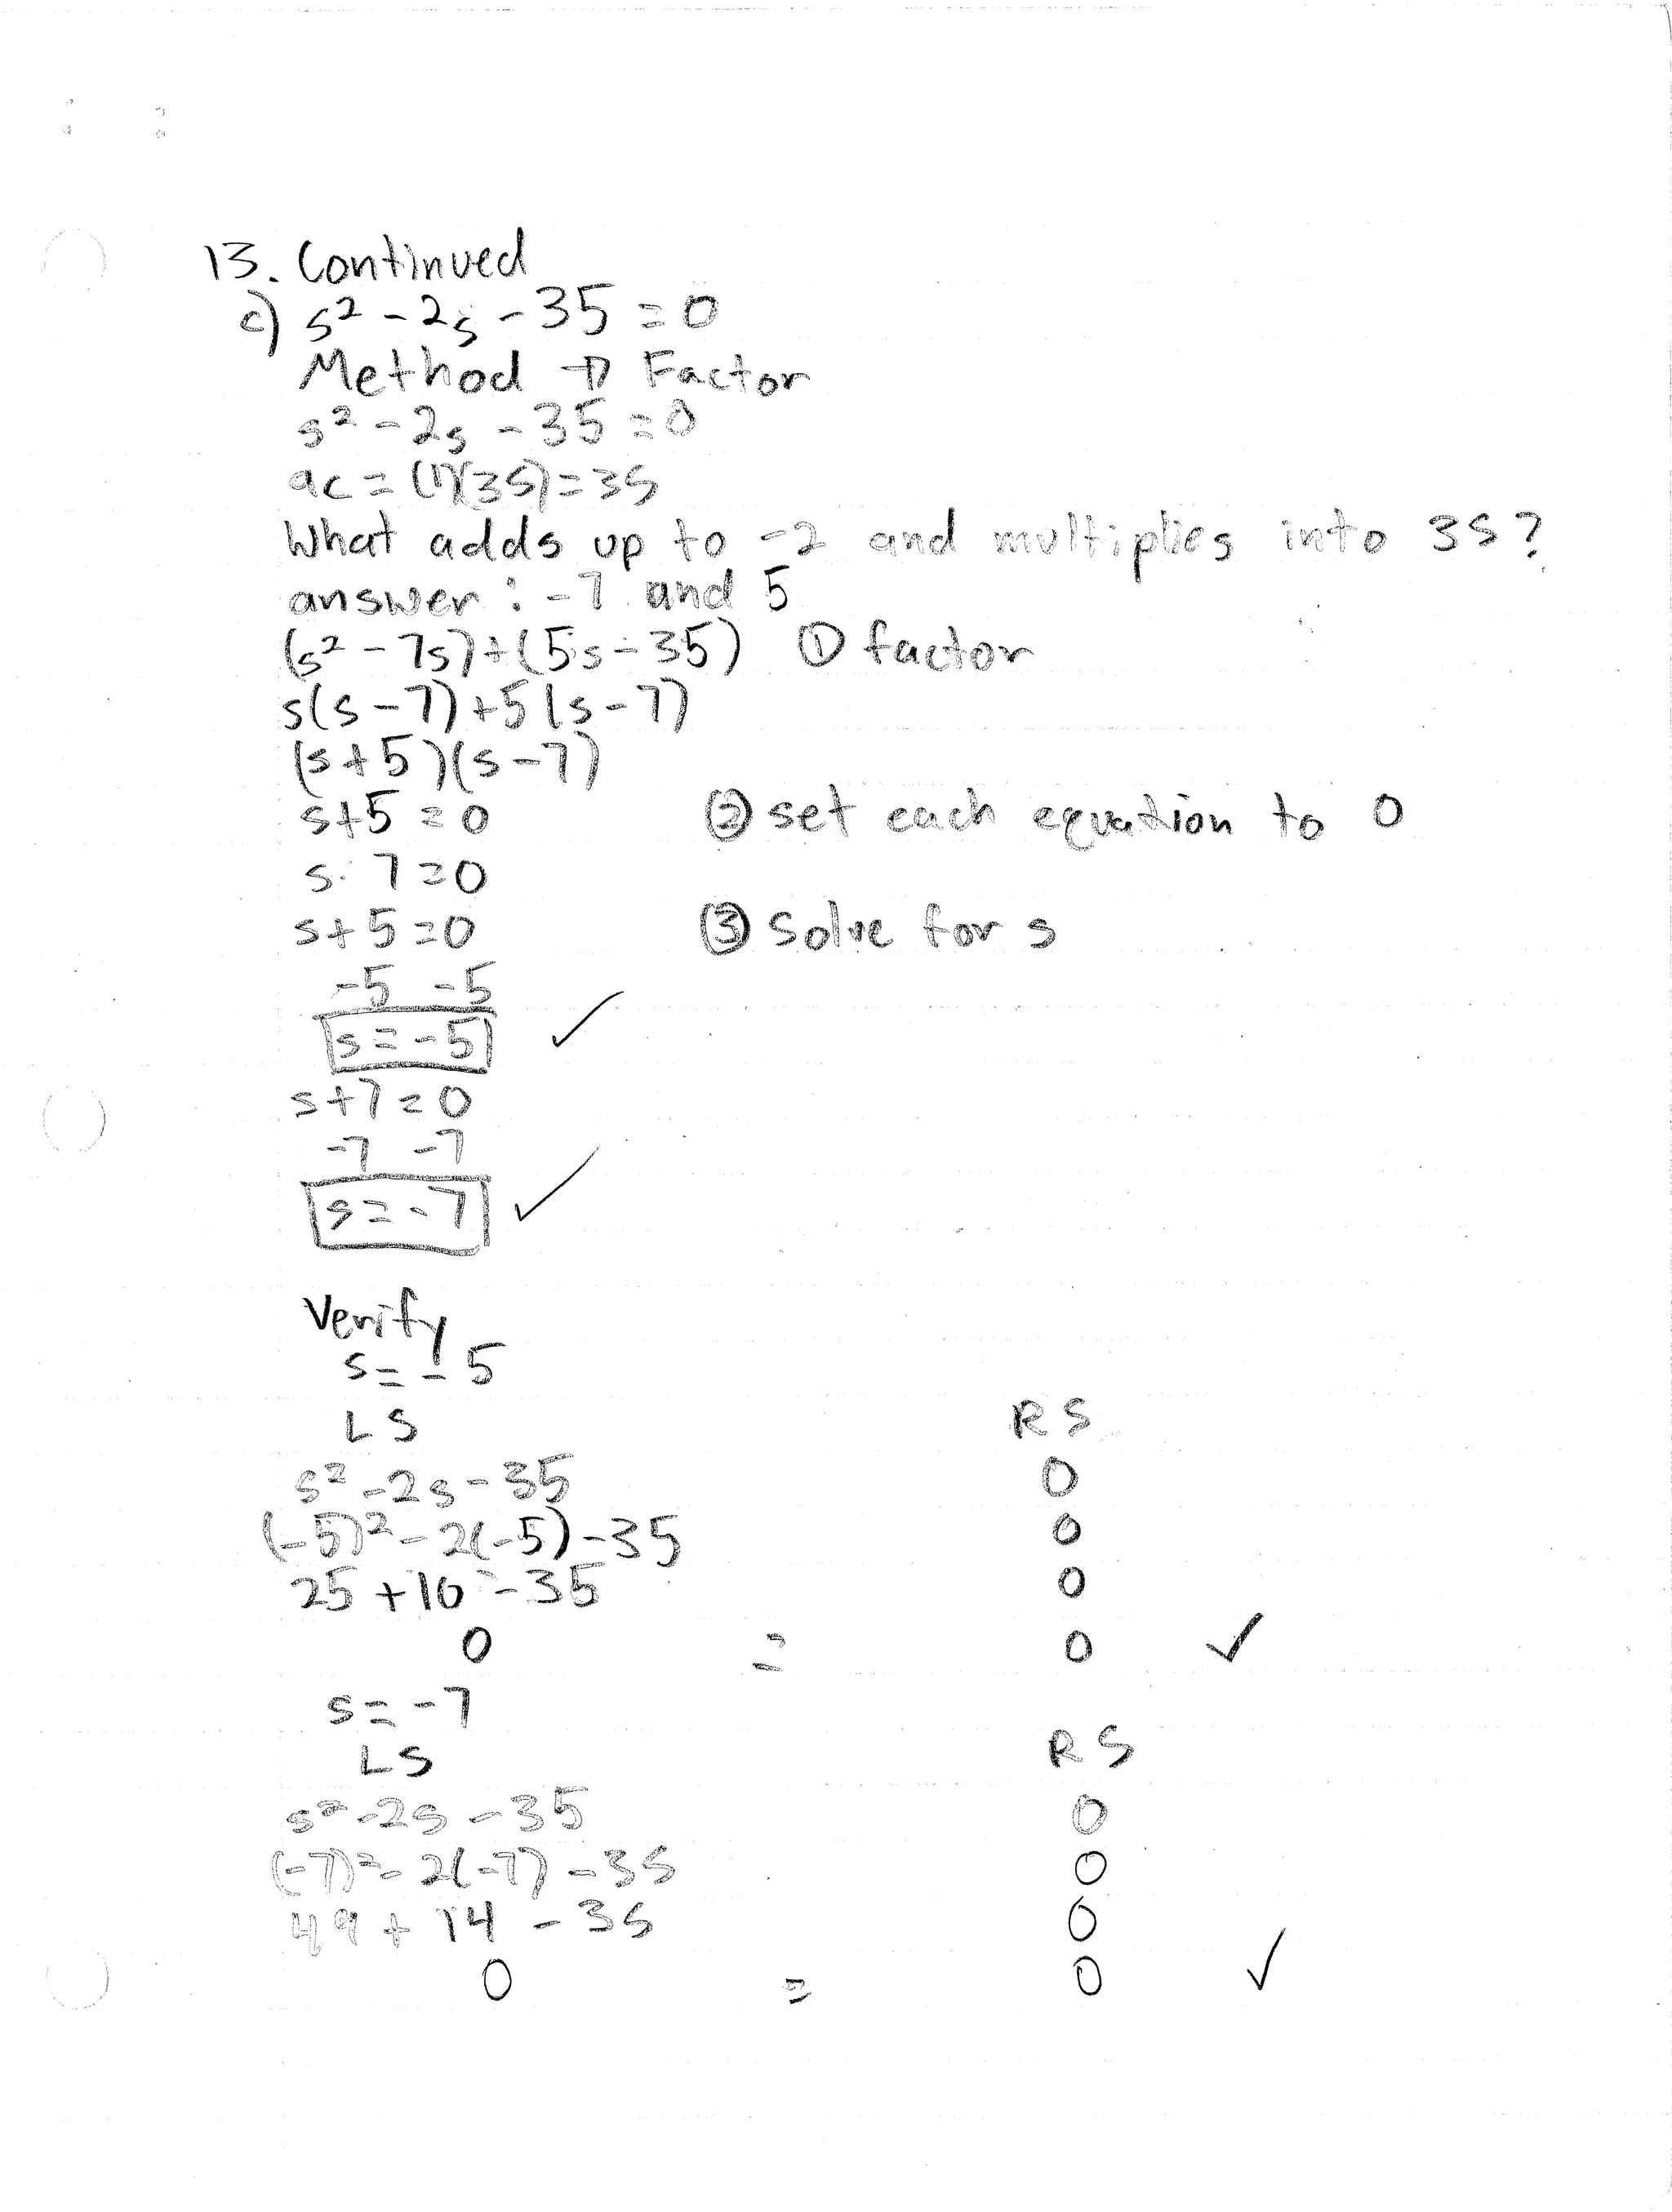 13. Continued
c) s² - 2s - 35 = 0
Method → Factor
s² - 2s - 35 = 0
ac = (1)(35) = 35
What adds up to -2 and multiplies into 35?
answer: -7 and 5
(s² - 7s) + (5s - 35) ① factor
s(s - 7) + 5(s - 7)
(s + 5)(s - 7)
s + 5 = 0 ② set each equation to 0
s - 7 = 0
s + 5 = 0 ③ Solve for s
-5 -5
s = -5 ✓
s + 7 = 0
-7 -7
s = -7 ✓
Verify
s = -5
LS RS
s² - 2s - 35 0
(-5)² - 2(-5) - 35 0
25 + 10 - 35 0
0 = 0 ✓
s = -7
LS RS
s² - 2s - 35 0
(-7)² - 2(-7) - 35 0
49 + 14 - 35 0
0 = 0 ✓